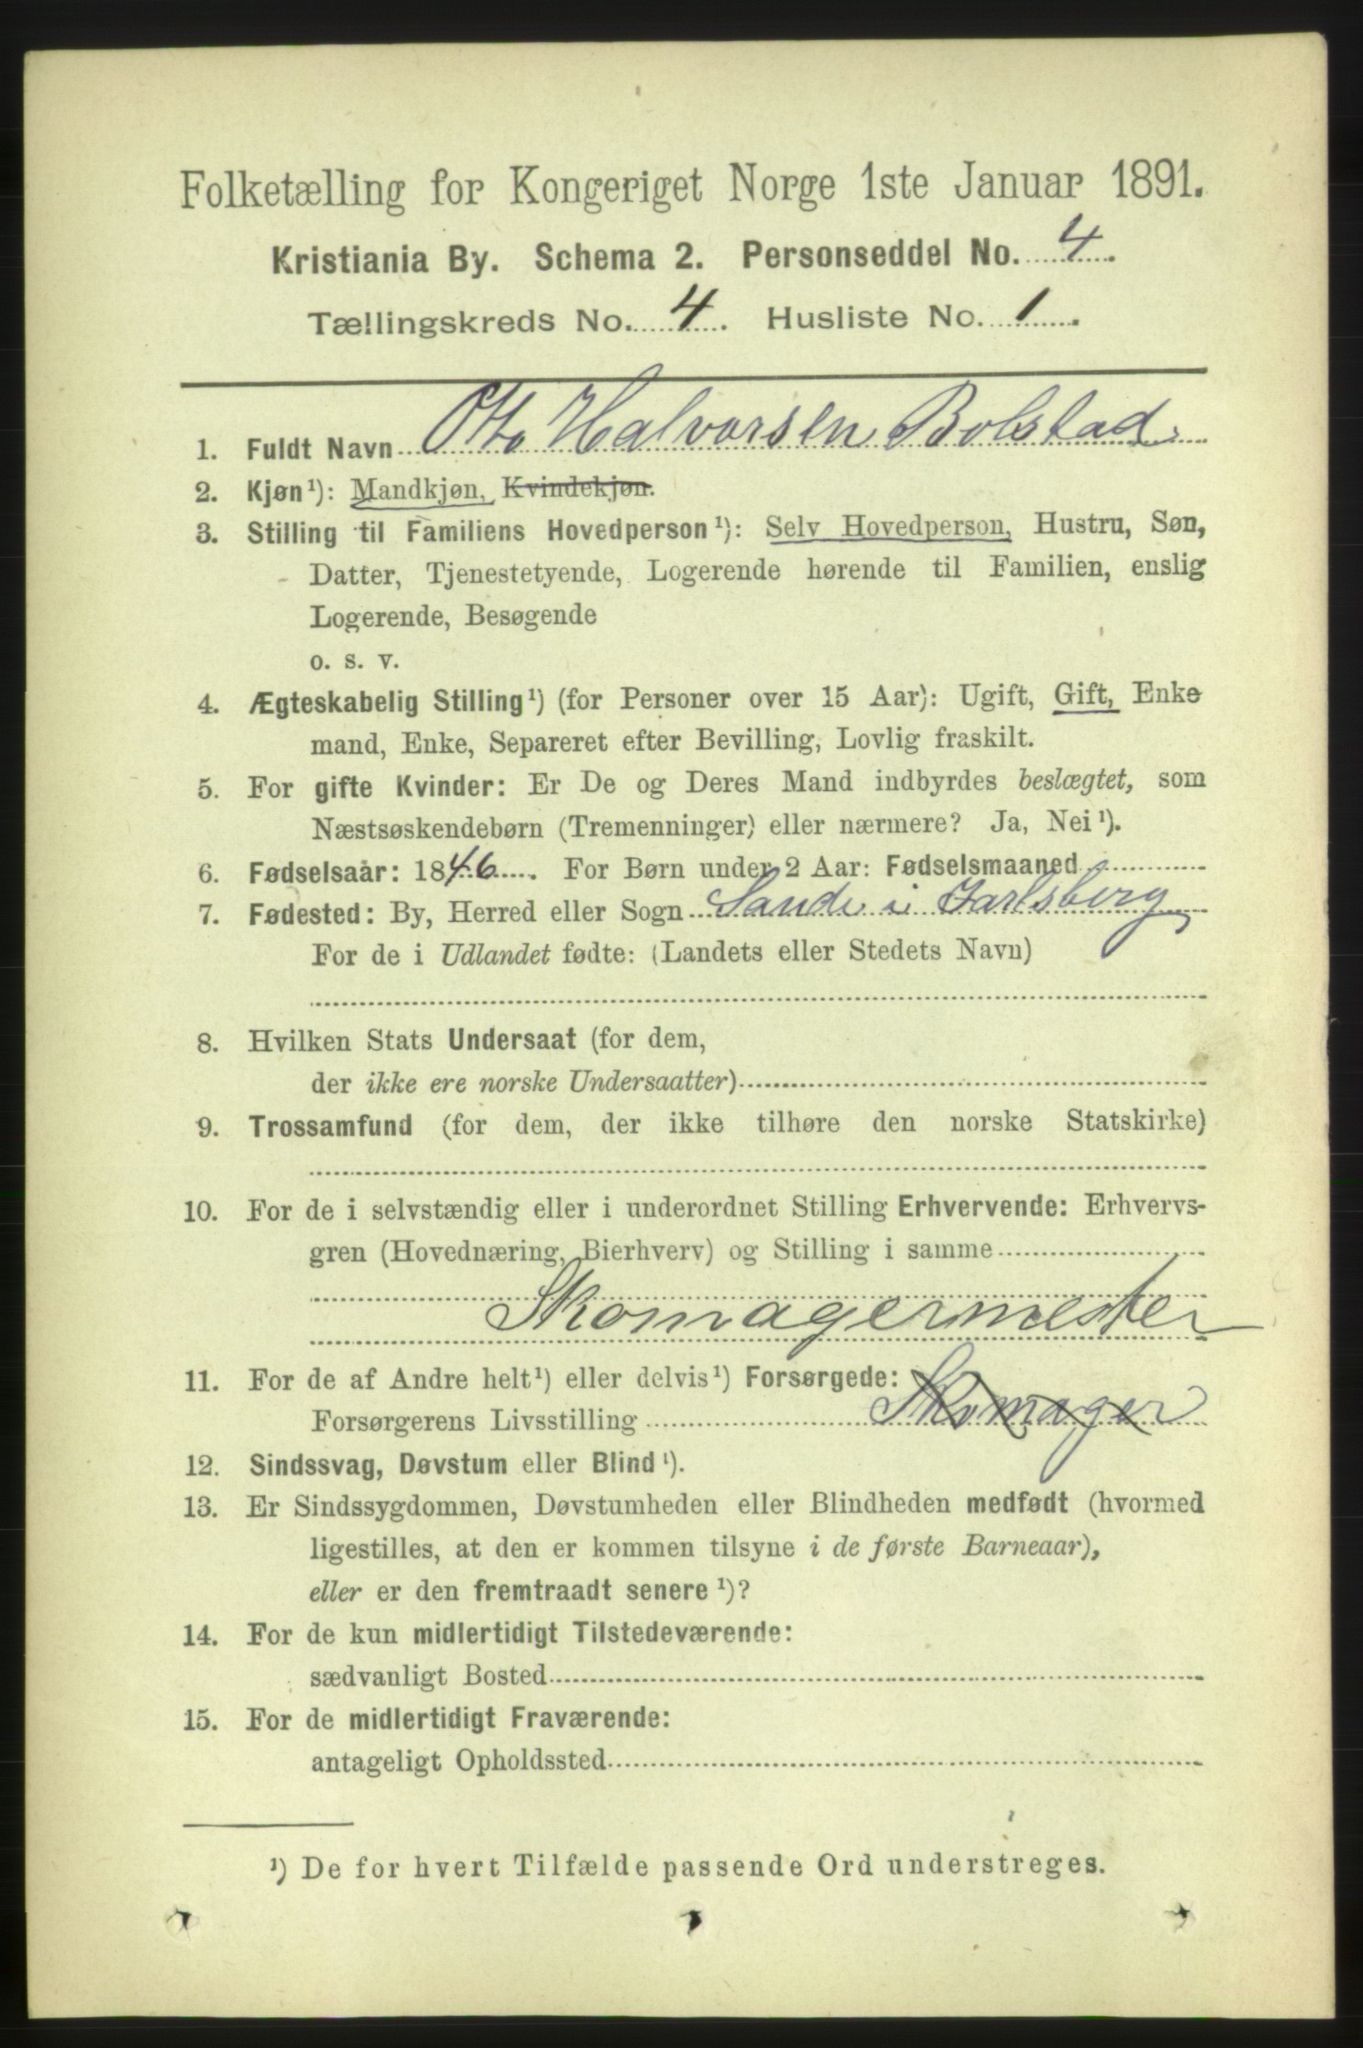 Folketælling for Kongeriget Norge 1ste Januar 1891.
Kristiania By. Schema 2. Personseddel No. 4.
Tællingskreds No. 4. Husliste No. 1.
1. Fuldt Navn Otto Halvorsen Bolstad
2. Kjøn¹): Mandkjøn, Kvindekjøn.
3. Stilling til Familiens Hovedperson¹): Selv Hovedperson, Hustru, Søn,
Datter, Tjenestetyende, Logerende hørende til Familien, enslig
Logerende, Besøgende
o. s. v.
4. Ægteskabelig Stilling¹) (for Personer over 15 Aar): Ugift, Gift, Enke
mand, Enke, Separeret efter Bevilling, Lovlig fraskilt.
5. For gifte Kvinder: Er De og Deres Mand indbyrdes beslægtet, som
Næstsøskendebørn (Tremenninger) eller nærmere? Ja, Nei¹).
6. Fødselsaar: 1846. For Børn under 2 Aar: Fødselsmaaned
7. Fødested: By, Herred eller Sogn Sande i Jarlsberg
For de i Udlandet fødte: (Landets eller Stedets Navn)
8. Hvilken Stats Undersaat (for dem,
der ikke ere norske Undersaatter)
9. Trossamfund (for dem, der ikke tilhøre den norske Statskirke)
10. For de i selvstændig eller i underordnet Stilling Erhvervende: Erhvervs-
gren (Hovednæring, Bierhverv) og Stilling i samme
Skomagermester
11. For de af Andre helt¹) eller delvis¹) Forsørgede:
Forsørgerens Livsstilling Skomager
12. Sindssvag, Døvstum eller Blind¹).
13. Er Sindssygdommen, Døvstumheden eller Blindheden medfødt (hvormed
ligestilles, at den er kommen tilsyne i de første Barneaar),
eller er den fremtraadt senere¹)?
14. For de kun midlertidigt Tilstedeværende:
sædvanligt Bosted
15. For de midlertidigt Fraværende:
antageligt Opholdssted
¹) De for hvert Tilfælde passende Ord understreges.